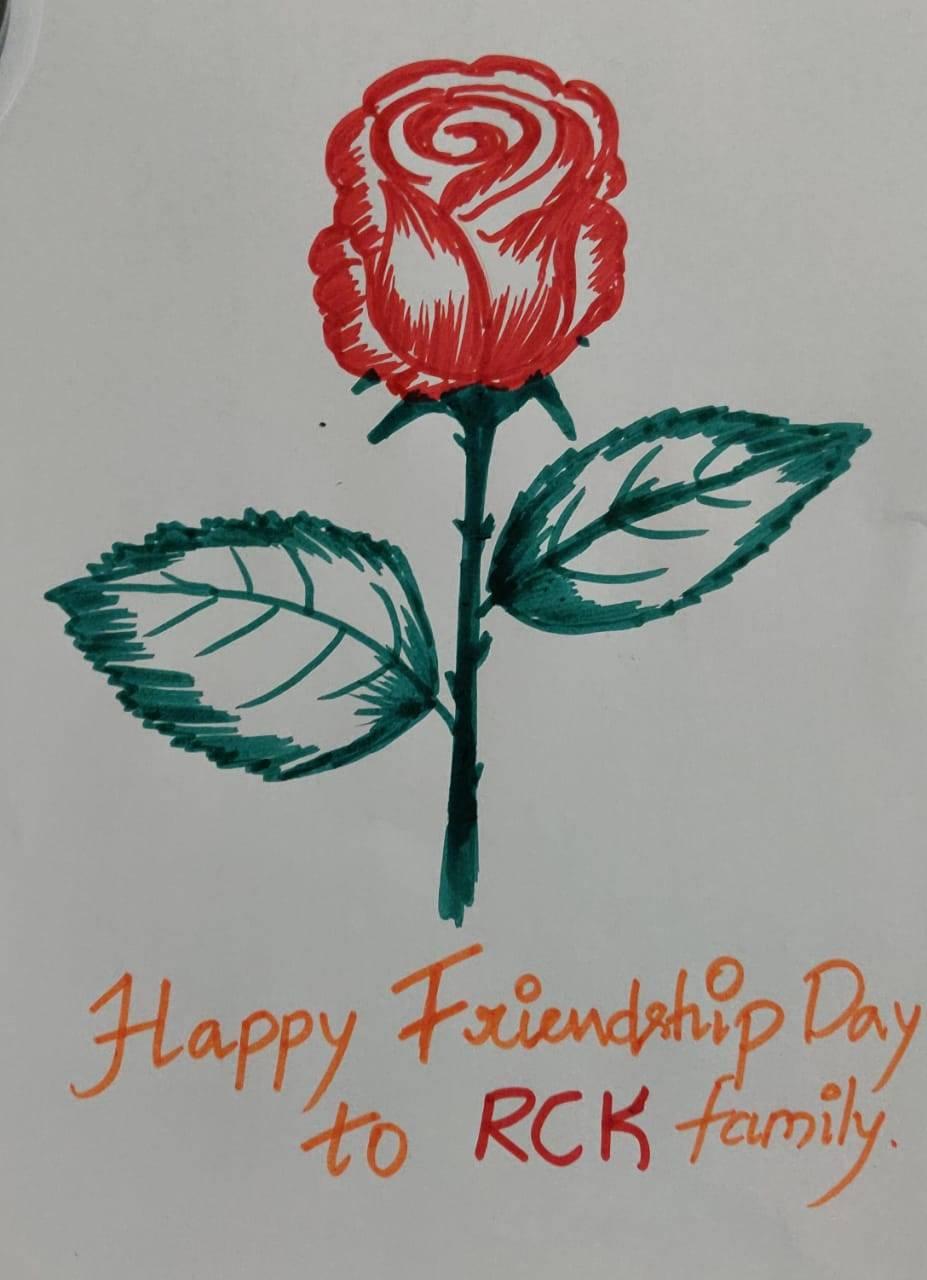 Happy Friendship Day
to RCK family.